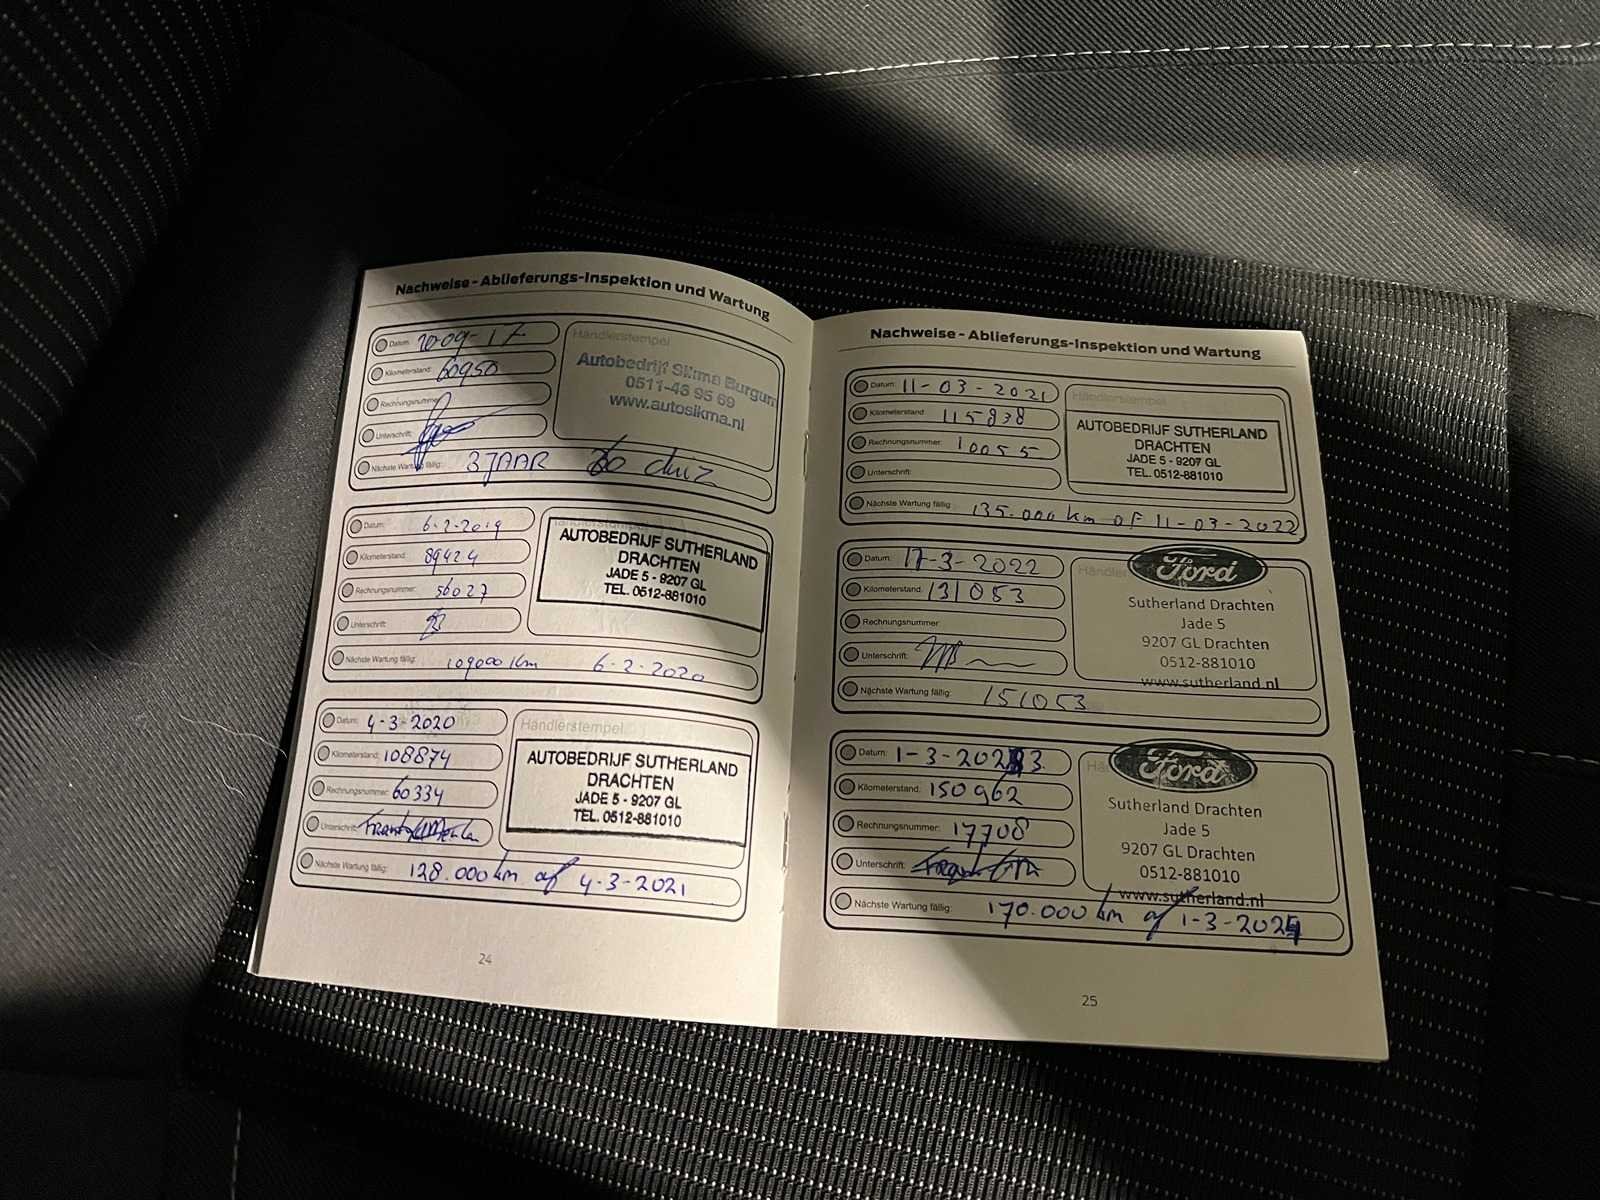 Nachweise - Ablieferungs-Inspektion und Wartung
Datum: 20-09-17
Kilometerstand: 60950
Rechnungsnummer:
Unterschrift:
Nächste Wartung fällig: 2 JAAR
Händlerstempel
Autobedrijf Sikma Burgum
0511-46 95 69
www.autosikma.nl
Datum: 6-2-2019
Kilometerstand: 89424
Rechnungsnummer: 56027
Unterschrift:
Nächste Wartung fällig: 109000 Km 6-2-2020
Händlerstempel
AUTOBEDRIJF SUTHERLAND
DRACHTEN
JADE 5 - 9207 GL
TEL. 0512-881010
Datum: 4-3-2020
Kilometerstand: 108874
Rechnungsnummer: 60334
Unterschrift:
Nächste Wartung fällig: 128.000 km of 4-3-2021
Händlerstempel
AUTOBEDRIJF SUTHERLAND
DRACHTEN
JADE 5 - 9207 GL
TEL. 0512-881010
24
Nachweise - Ablieferungs-Inspektion und Wartung
Datum: 11-03-2021
Kilometerstand: 115838
Rechnungsnummer: 10055
Unterschrift:
Nächste Wartung fällig: 135.000 km of 11-03-2022
Händlerstempel
AUTOBEDRIJF SUTHERLAND
DRACHTEN
JADE 5 - 9207 GL
TEL. 0512-881010
Datum: 17-3-2022
Kilometerstand: 131053
Rechnungsnummer:
Unterschrift:
Nächste Wartung fällig: 151053
Ford
Sutherland Drachten
Jade 5
9207 GL Drachten
0512-881010
www.sutherland.nl
Datum: 1-3-2023
Kilometerstand: 150962
Rechnungsnummer: 17708
Unterschrift:
Nächste Wartung fällig: 170.000 km of 1-3-2024
Ford
Sutherland Drachten
Jade 5
9207 GL Drachten
0512-881010
www.sutherland.nl
25